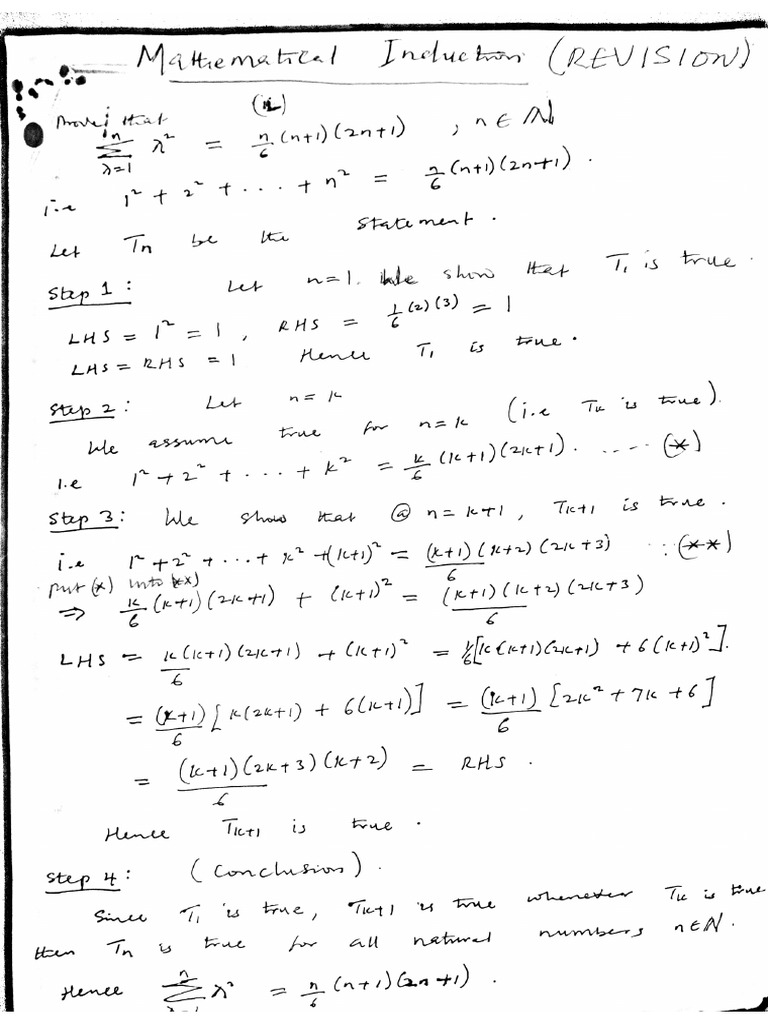 Mathematical Induction (REVISION)
(i)
Prove that
∑_{λ=1}^{n} λ² = n/6 (n+1)(2n+1) , n ∈ ℕ
i.e 1² + 2² + ... + n² = n/6 (n+1)(2n+1) .
Let Tn be the statement .
Step 1 : Let n=1. We show that T₁ is true .
LHS = 1² = 1 , RHS = 1/6 (2)(3) = 1
LHS = RHS = 1 Hence T₁ is true .
Step 2 : Let n = k
We assume true for n=k (i.e Tk is true).
i.e 1² + 2² + ... + k² = k/6 (k+1)(2k+1) . .... (*)
Step 3 : We show that @ n = k+1 , Tk+1 is true .
i.e 1² + 2² + ... + k² + (k+1)² = (k+1)(k+2)(2k+3)/6 ...(**)
put (*) into (**)
⇒ k/6 (k+1)(2k+1) + (k+1)² = (k+1)(k+2)(2k+3)/6
LHS = k(k+1)(2k+1)/6 + (k+1)² = 1/6[k(k+1)(2k+1) + 6(k+1)²].
= (k+1)/6 [k(2k+1) + 6(k+1)] = (k+1)/6 [2k² + 7k + 6]
= (k+1)(2k+3)(k+2)/6 = RHS .
Hence Tk+1 is true .
Step 4 : (Conclusion) .
Since T₁ is true, Tk+1 is true whenever Tk is true
then Tn is true for all natural numbers n∈ℕ.
Hence ∑_{λ=1}^{n} λ² = n/6 (n+1)(2n+1) .